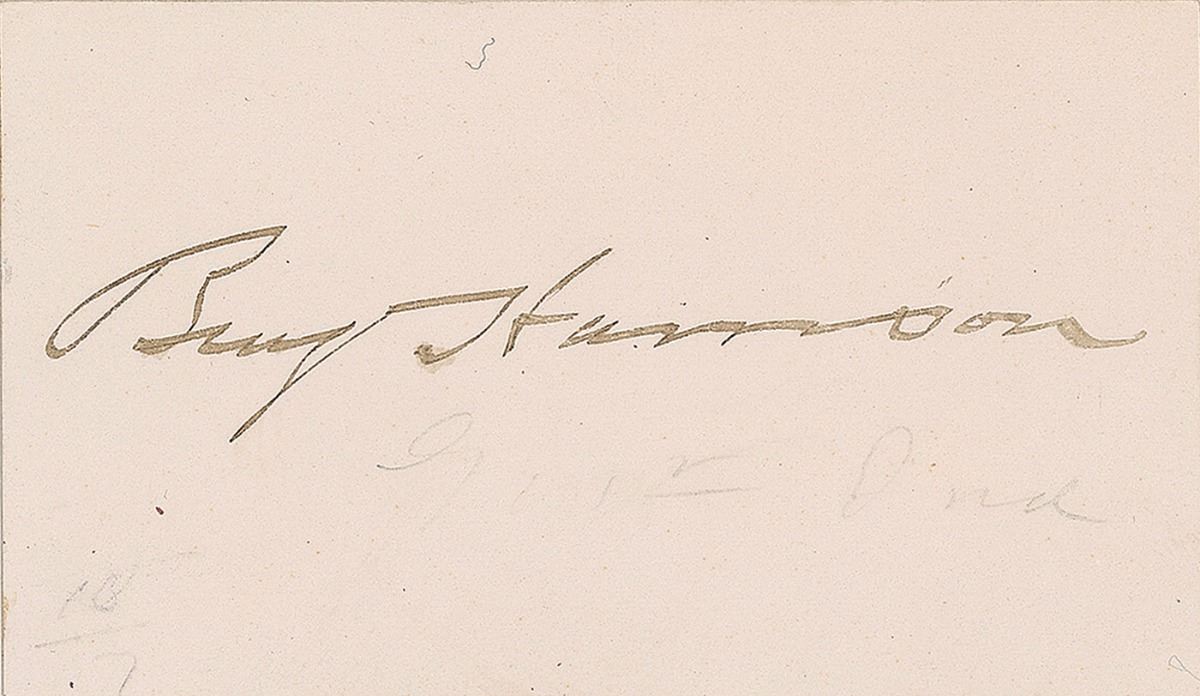 Benj Harrison
Ind
18
7